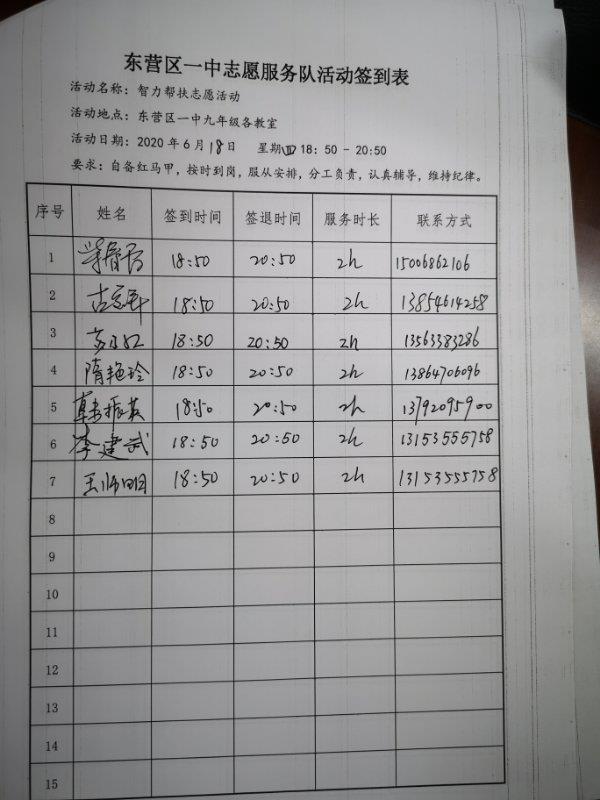 东营区一中志愿服务队活动签到表
活动名称：智力帮扶志愿活动
活动地点：东营区一中九年级各教室
活动日期：2020年6月18日 星期四18：50-20:50
要求：自备红马甲，按时到岗，服从安排，分工负责，认真辅导，维持纪律。
序号 姓名 签到时间 签退时间 服务时长 联系方式
1 18:50 20:50 2h 15006862106
2 18:50 20:50 2h 13854614258
3 18:50 20:50 2h 13563383286
4 隋艳玲 18:50 20:50 2h 13864706096
5 振英 18:50 20:50 2h 13792095900
6 李建武 18:50 20:50 2h 13153555758
7 王师明 18:50 20:50 2h 13153555758
8
9
10
11
12
13
14
15